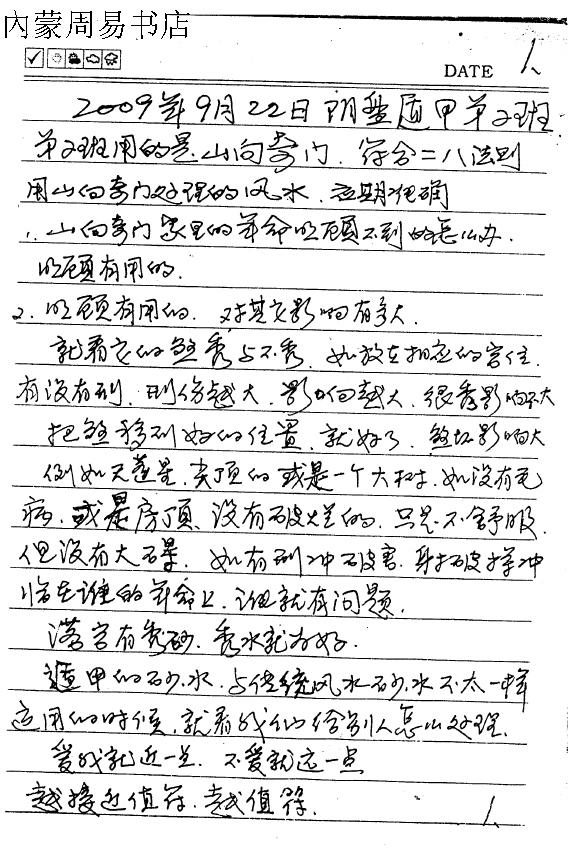 內蒙周易书店
DATE 1
2009年9月22日 阴盘遁甲第2班
第2班用的是山向奇门、符合二八法则
用山向奇门处理的风水、应期准确
1、山向奇门家里的年命照顾不到的怎么办.
照顾有用的.
2. 照顾有用的. 对其它影响有多大
就看它的煞秀与不秀、如放在相应的宫位.
有没有刑、刑伤越大、影响越大、很秀影响不大
把煞移到好的位置、就好了、煞坏影响大
例如天蓬星、尖顶的或是一个大树、如没有毛
病、或是房顶、没有破烂的、只是不舒服
但没有大碍、如有刑冲破害、
临在谁的年命上、谁就有问题.
落宫有秀砂、秀水就为好.
遁甲的砂、水、与传统风水砂、水不太一样
运用的时候、就看我们给别人怎么处理.
爱我就近一点、不爱就远一点
越接近值符、越值符.
1